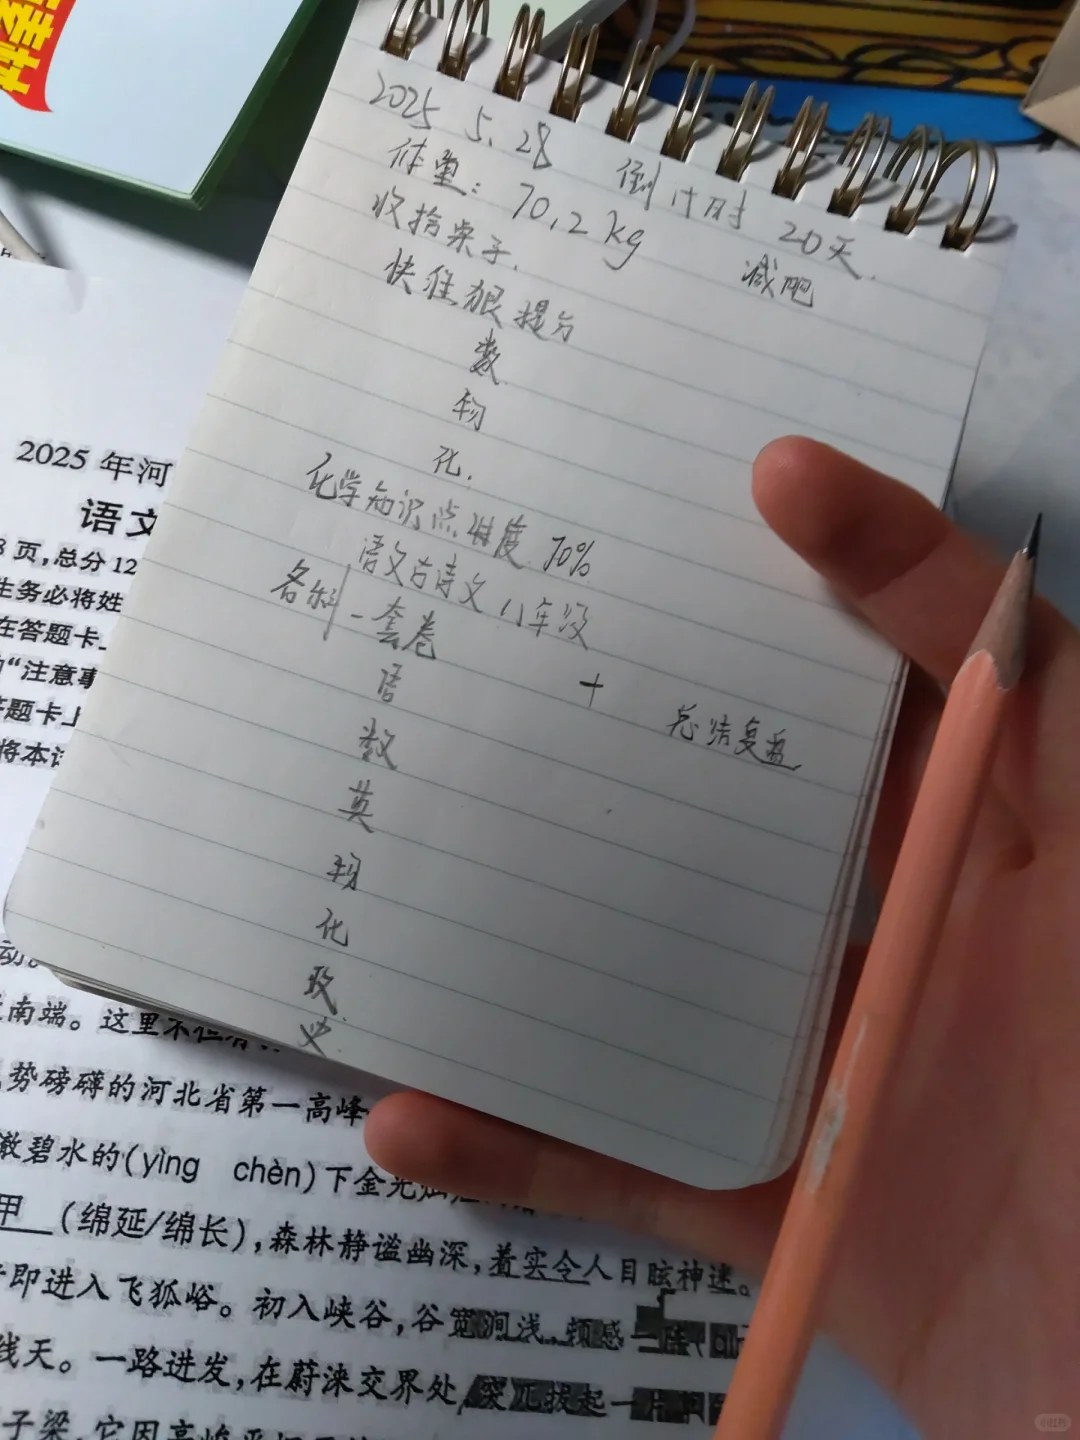 2025 5.28 倒计时 20天.
体重: 70.2 kg 减肥
收拾桌子.
快准狠提分
数
物
化.
化学知识点进度 70%
语文古诗文八年级
各科一套卷
语
数
英
物
化
政
史
+ 总结复盘
2025年河
语文
8页,总分12
生务必将姓
在答题卡上
“注意事
答题卡上
将本试
动。
南端。这里不但有
势磅礴的河北省第一高峰
澈碧水的(yìng chèn)下金光灿
甲 (绵延/绵长),森林静谧幽深,着实令人目眩神迷。
即进入飞狐峪。初入峡谷,谷宽涧浅,顿感一
线天。一路进发,在蔚涞交界处,突兀拔起一片
子梁,它因高峻平坦
小红书